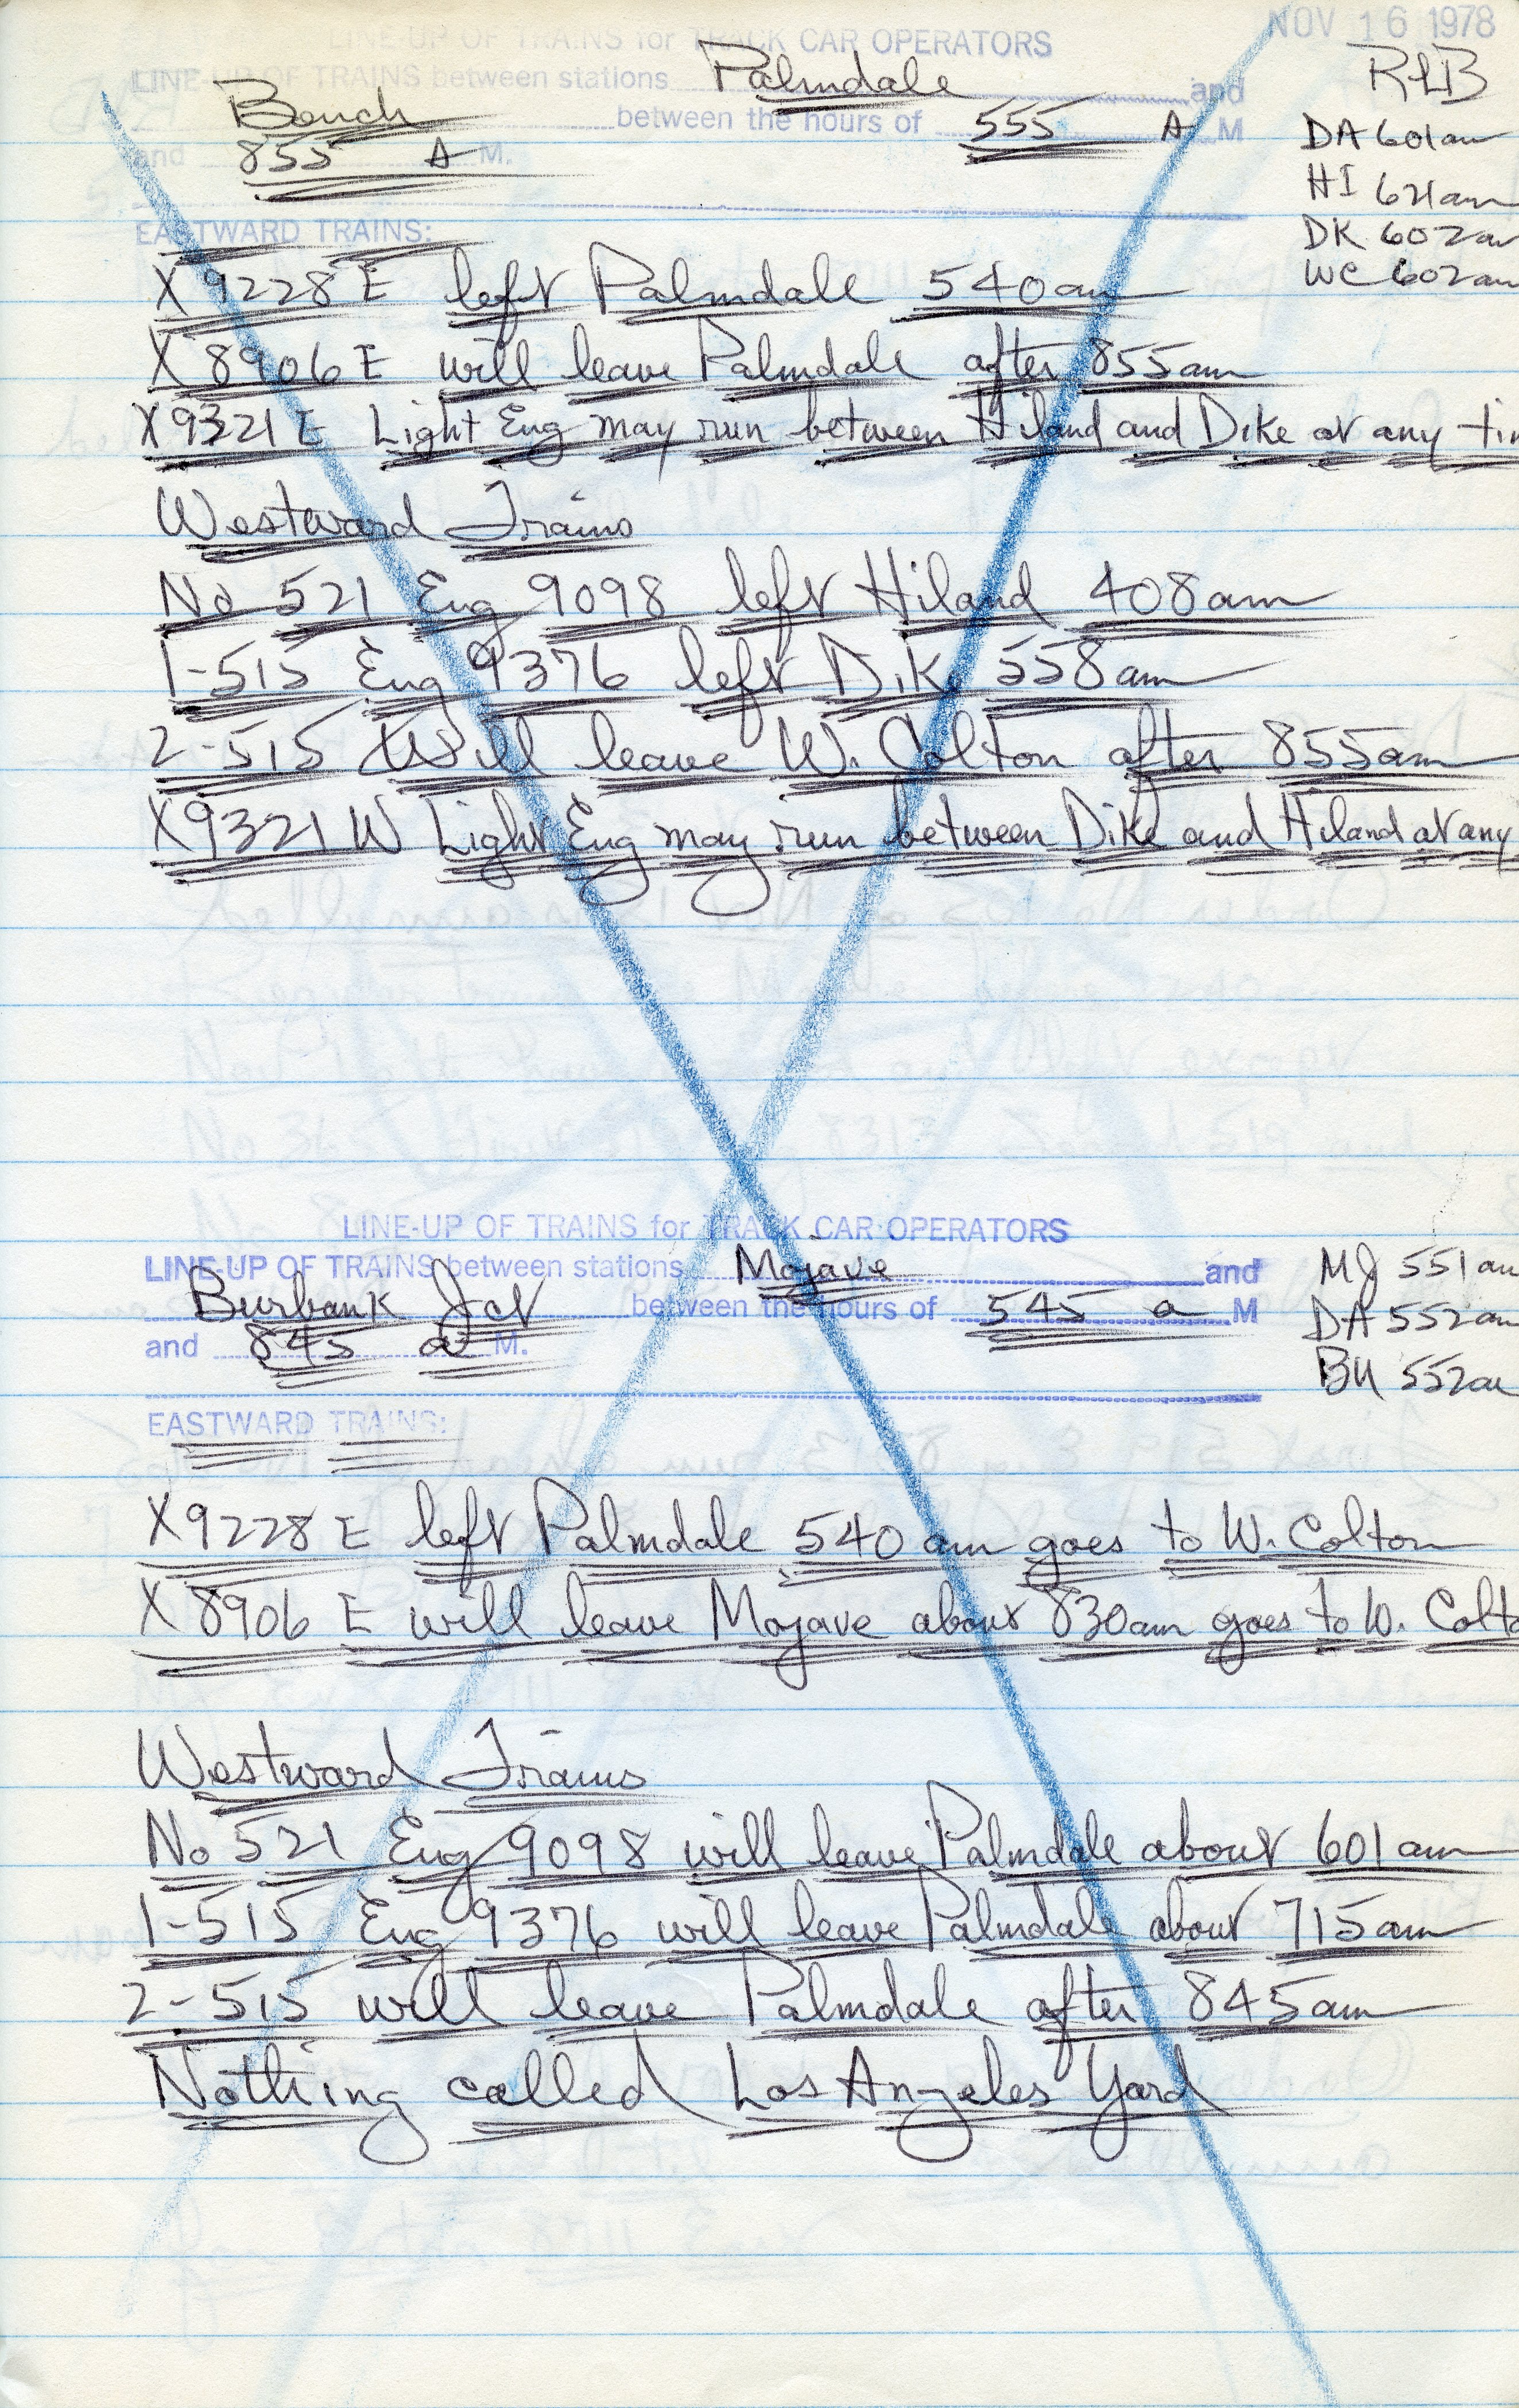 NOV 16 1978
LINE-UP OF TRAINS for TRACK CAR OPERATORS
RHB
LINE-UP OF TRAINS between stations Palmdale and
Bench between the hours of 555 A M
and 855 A M.
DA 601am
HI 621am
DK 602am
WC 602am
EASTWARD TRAINS:
X 9228 E left Palmdale 540am
X 8906 E will leave Palmdale after 855am
X 9321 E Light Eng may run between Hiland and Dike at any tim
Westward Trains
No 521 Eng 9098 left Hiland 408am
1-515 Eng 9376 left Dike 558am
2-515 Will leave W. Colton after 855am
X9321 W Light Eng may run between Dike and Hiland at any
LINE-UP OF TRAINS for TRACK CAR OPERATORS
LINE-UP OF TRAINS between stations Mojave and
Burbank Jct between the hours of 545 a M
and 845 a M.
MJ 551am
DA 552am
BU 552am
EASTWARD TRAINS:
X9228 E left Palmdale 540 am goes to W. Colton
X 8906 E will leave Mojave about 830am goes to W. Colto
Westward Trains
No 521 Eng 9098 will leave Palmdale about 601am
1-515 Eng 9376 will leave Palmdale about 715am
2-515 will leave Palmdale after 845am
Nothing called Los Angeles Yard